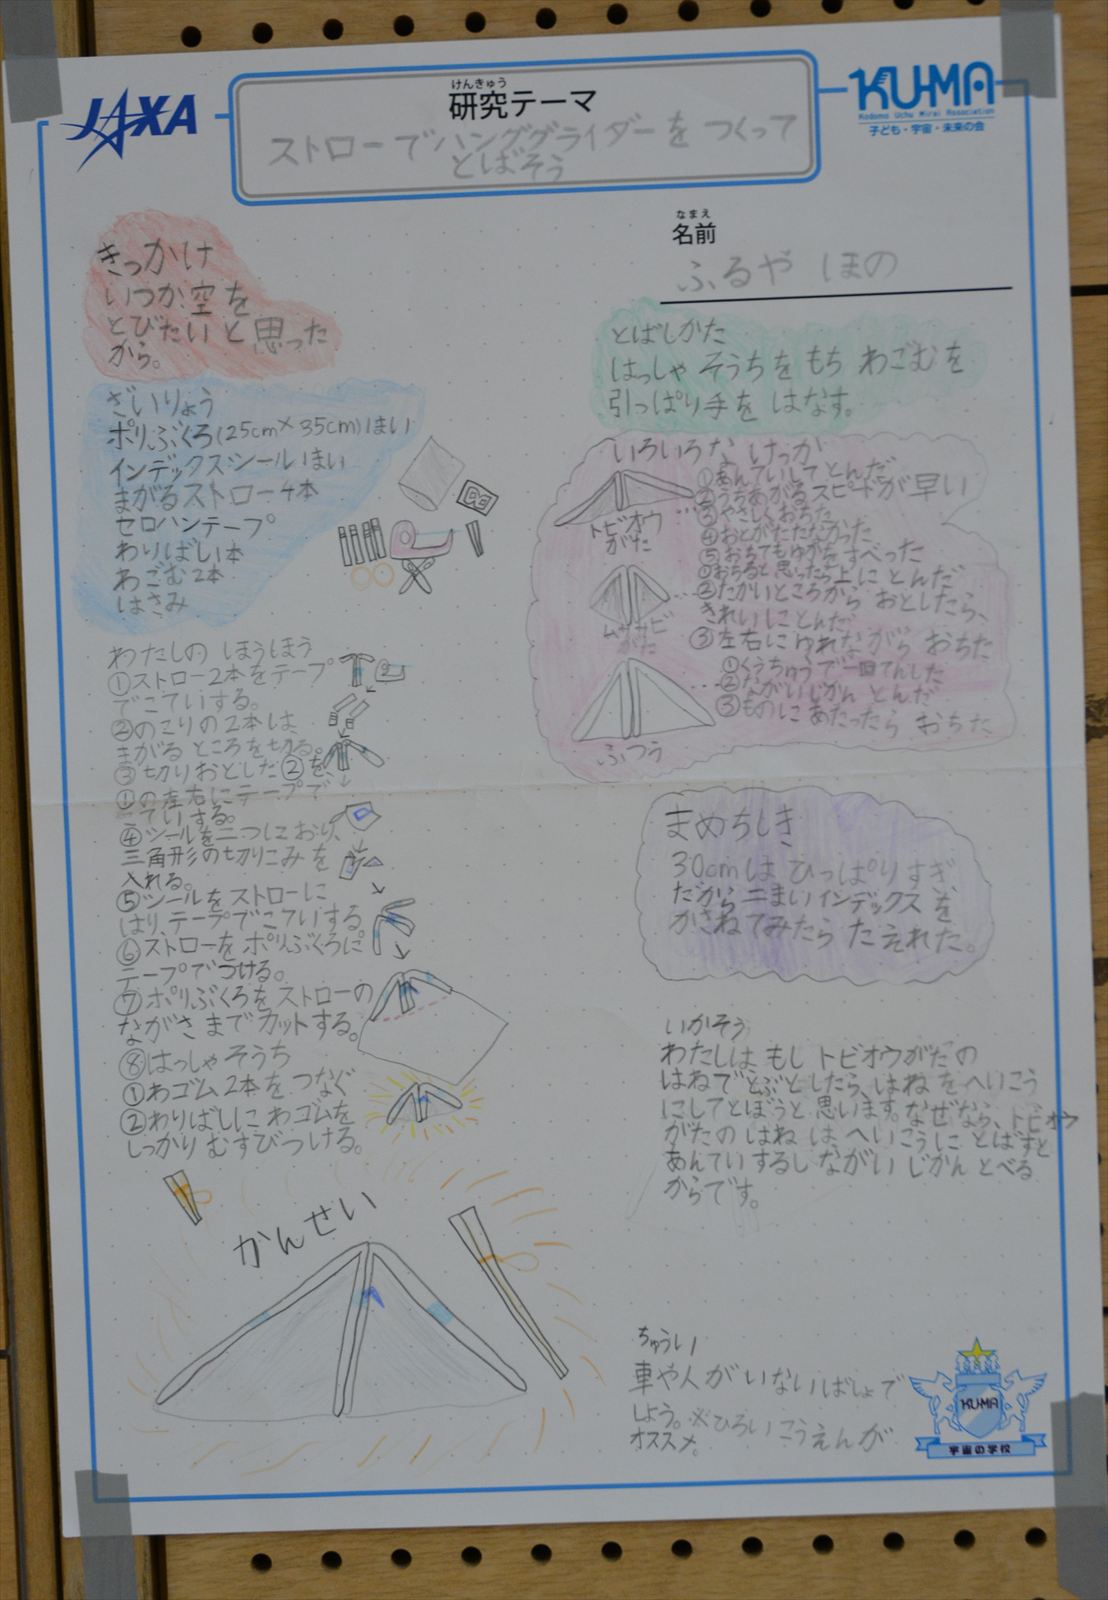 JAXA
けんきゅう
研究テーマ
ストローでハンググライダーをつくって
とばそう
KU-MA
Kodomo Uchu Mirai Association
子ども・宇宙・未来の会
なまえ
名前
ふるや ほの
きっかけ
いつか空を
とびたいと思った
から。
ざいりょう
ポリぶくろ(25cm×35cm)1まい
インデックスシール1まい
まがるストロー4本
セロハンテープ
わりばし1本
わごむ2本
はさみ
わたしの ほうほう
①ストロー2本をテープ
でこていする。
②のこりの2本は
まがるところを切る。
③切りおとした②を、
①の左右にテープで
こていする。
④シールを二つにおり、
三角形の切りこみを
入れる。
⑤シールをストローに
はり、テープでこていする。
⑥ストローをポリぶくろに
テープでつける。
⑦ポリぶくろをストローの
ながさまでカットする。
⑧はっしゃそうち
①わゴム2本をつなぐ
②わりばしにわゴムを
しっかりむすびつける。
かんせい
とばしかた
はっしゃそうちをもち わごむを
引っぱり手をはなす。
いろいろなけっか
トビオウ
がた
①あんていしてとんだ
②うちあがるスピードが早い
③やさしくおちた
④おとがたたなかった
⑤おちてもゆかをすべった
ムササビ
がた
①おちると思ったら上にとんだ
②たかいところからおとしたら、
きれいにとんだ
③左右にゆれながらおちた
ふつう
①くうちゅうで一回てんした
②ながいじかんとんだ
③ものにあたったらおちた
まめちしき
30cmはひっぱりすぎ
だから二まいインデックスを
かさねてみたらたえれた。
いかそう
わたしはもしトビオウがたの
はねでとぶとしたら、はねをへいこう
にしてとぼうと思います。なぜなら、トビオウ
がたのはねはへいこうにとばすと
あんていするしながいじかんとべる
からです。
ちゅうい
車や人がいないばしょで
しよう。※ひろいこうえんが
オススメ。
KU-MA
宇宙の学校